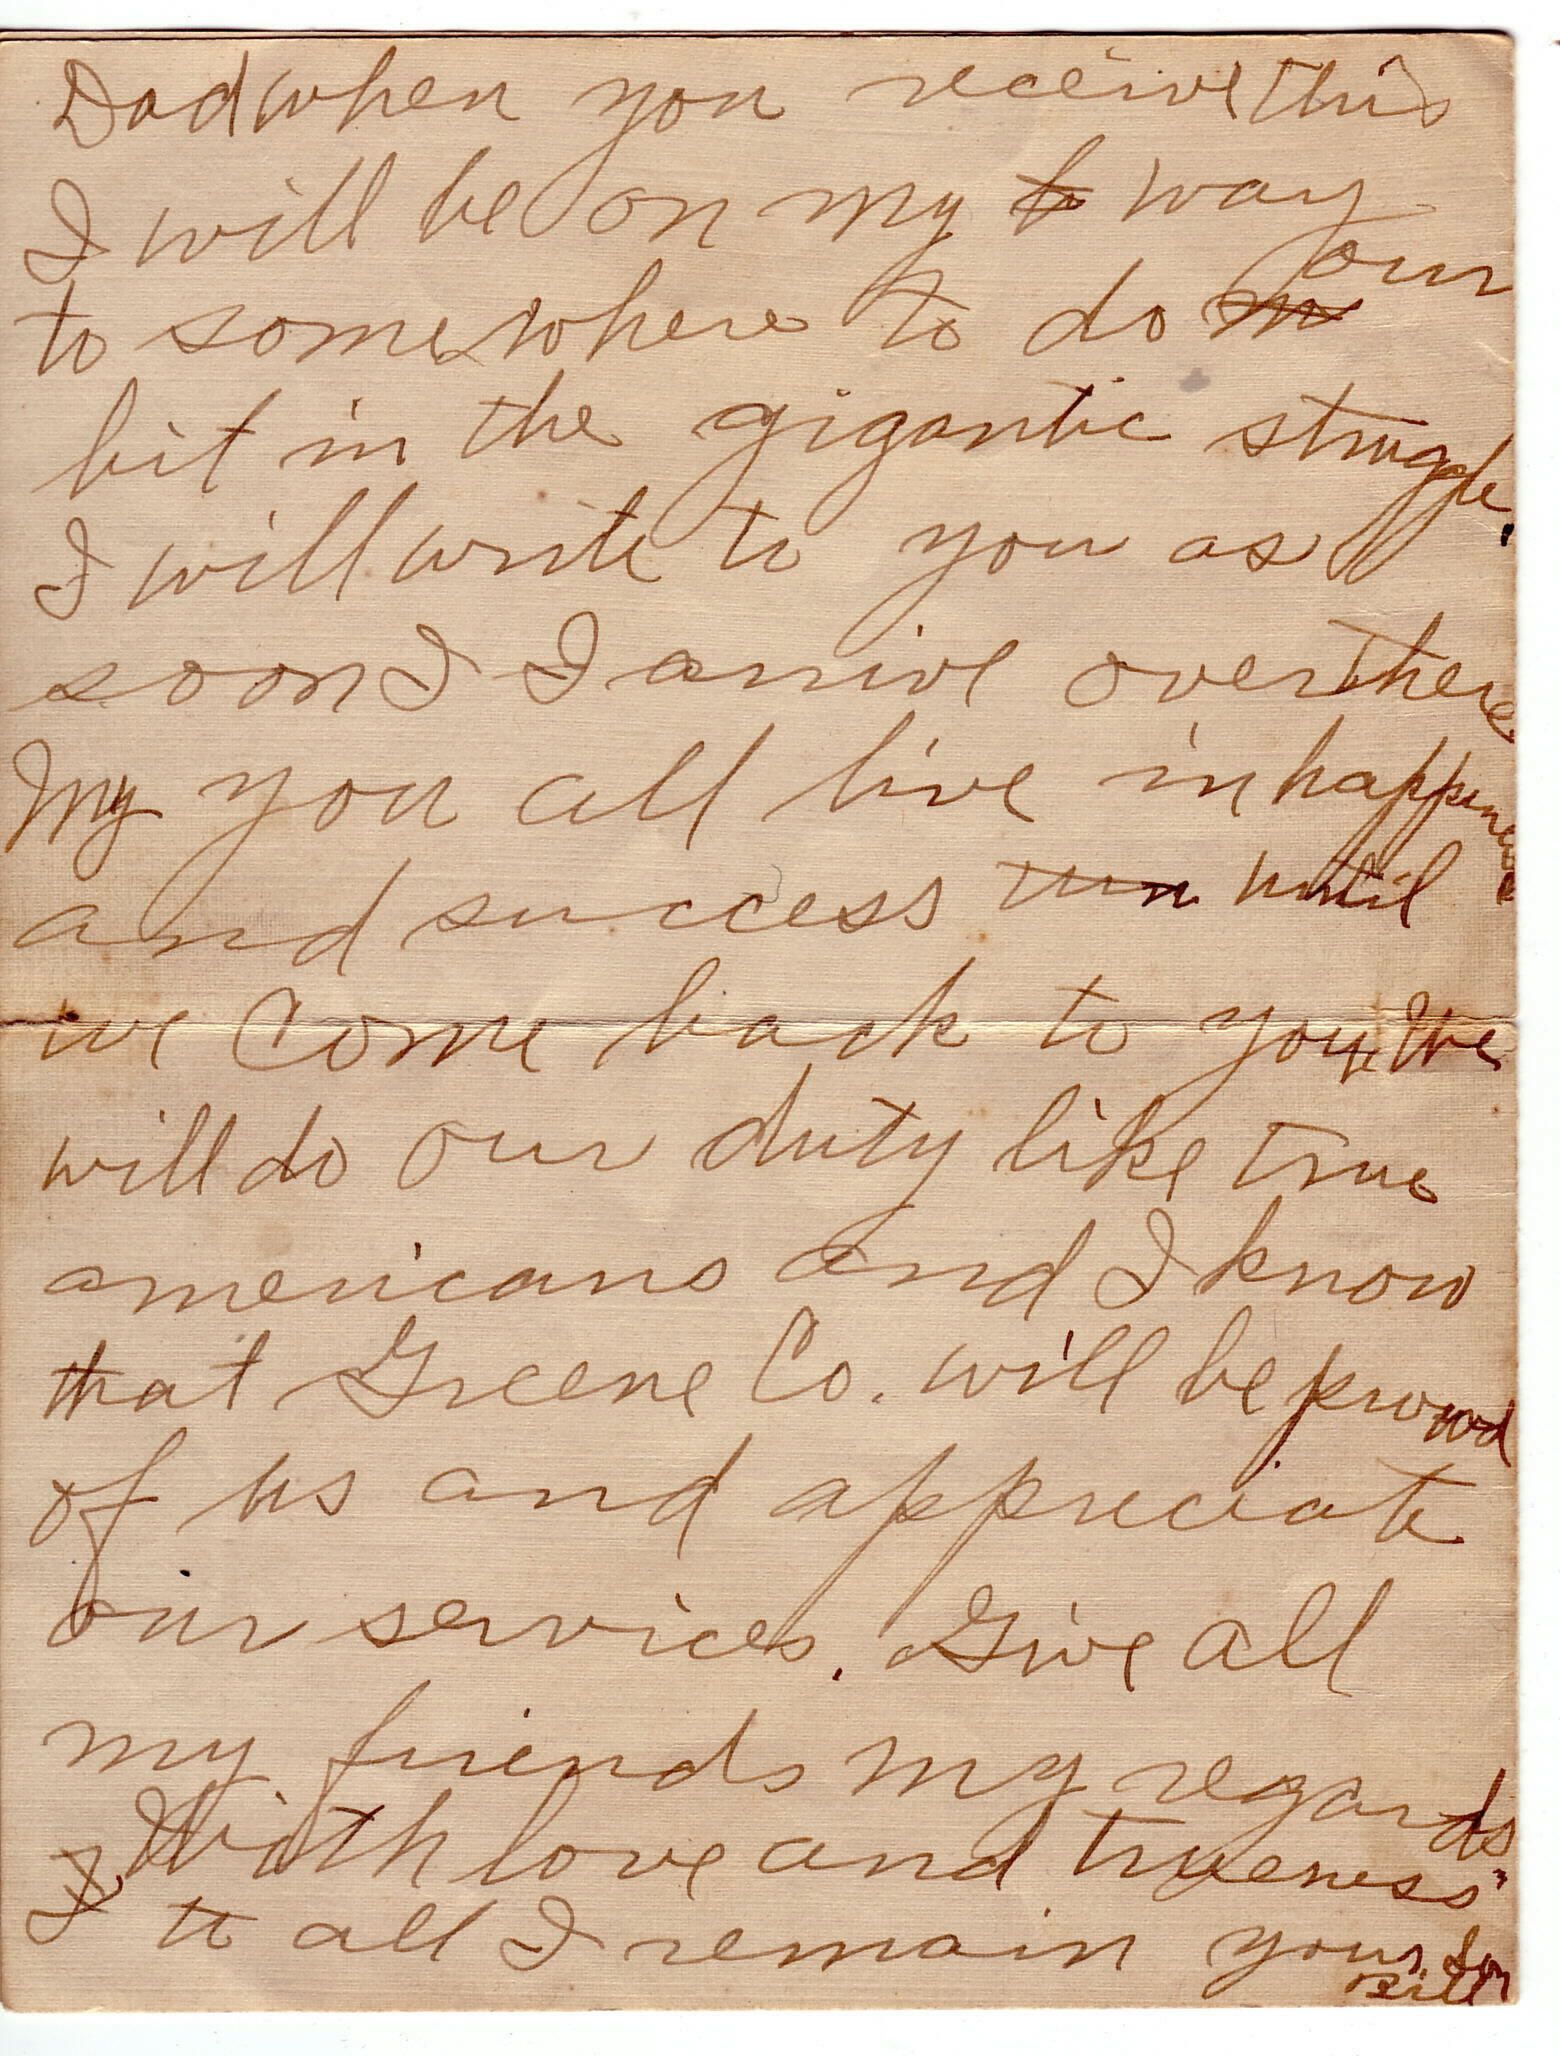 Dad when you receive this
I will be on my to way
to somewhere to do m our
bit in the gigantic struggle.
I will write to you as
soon I I arrive over there
My you all live in happiness
and success un until
we come back to you. We
will do our duty like true
americans and I know
that Greene Co. will be proud
of us and appreciate
our services. Give all
my friends my regards
With love and trueness
I to all I remain your Son
Bill